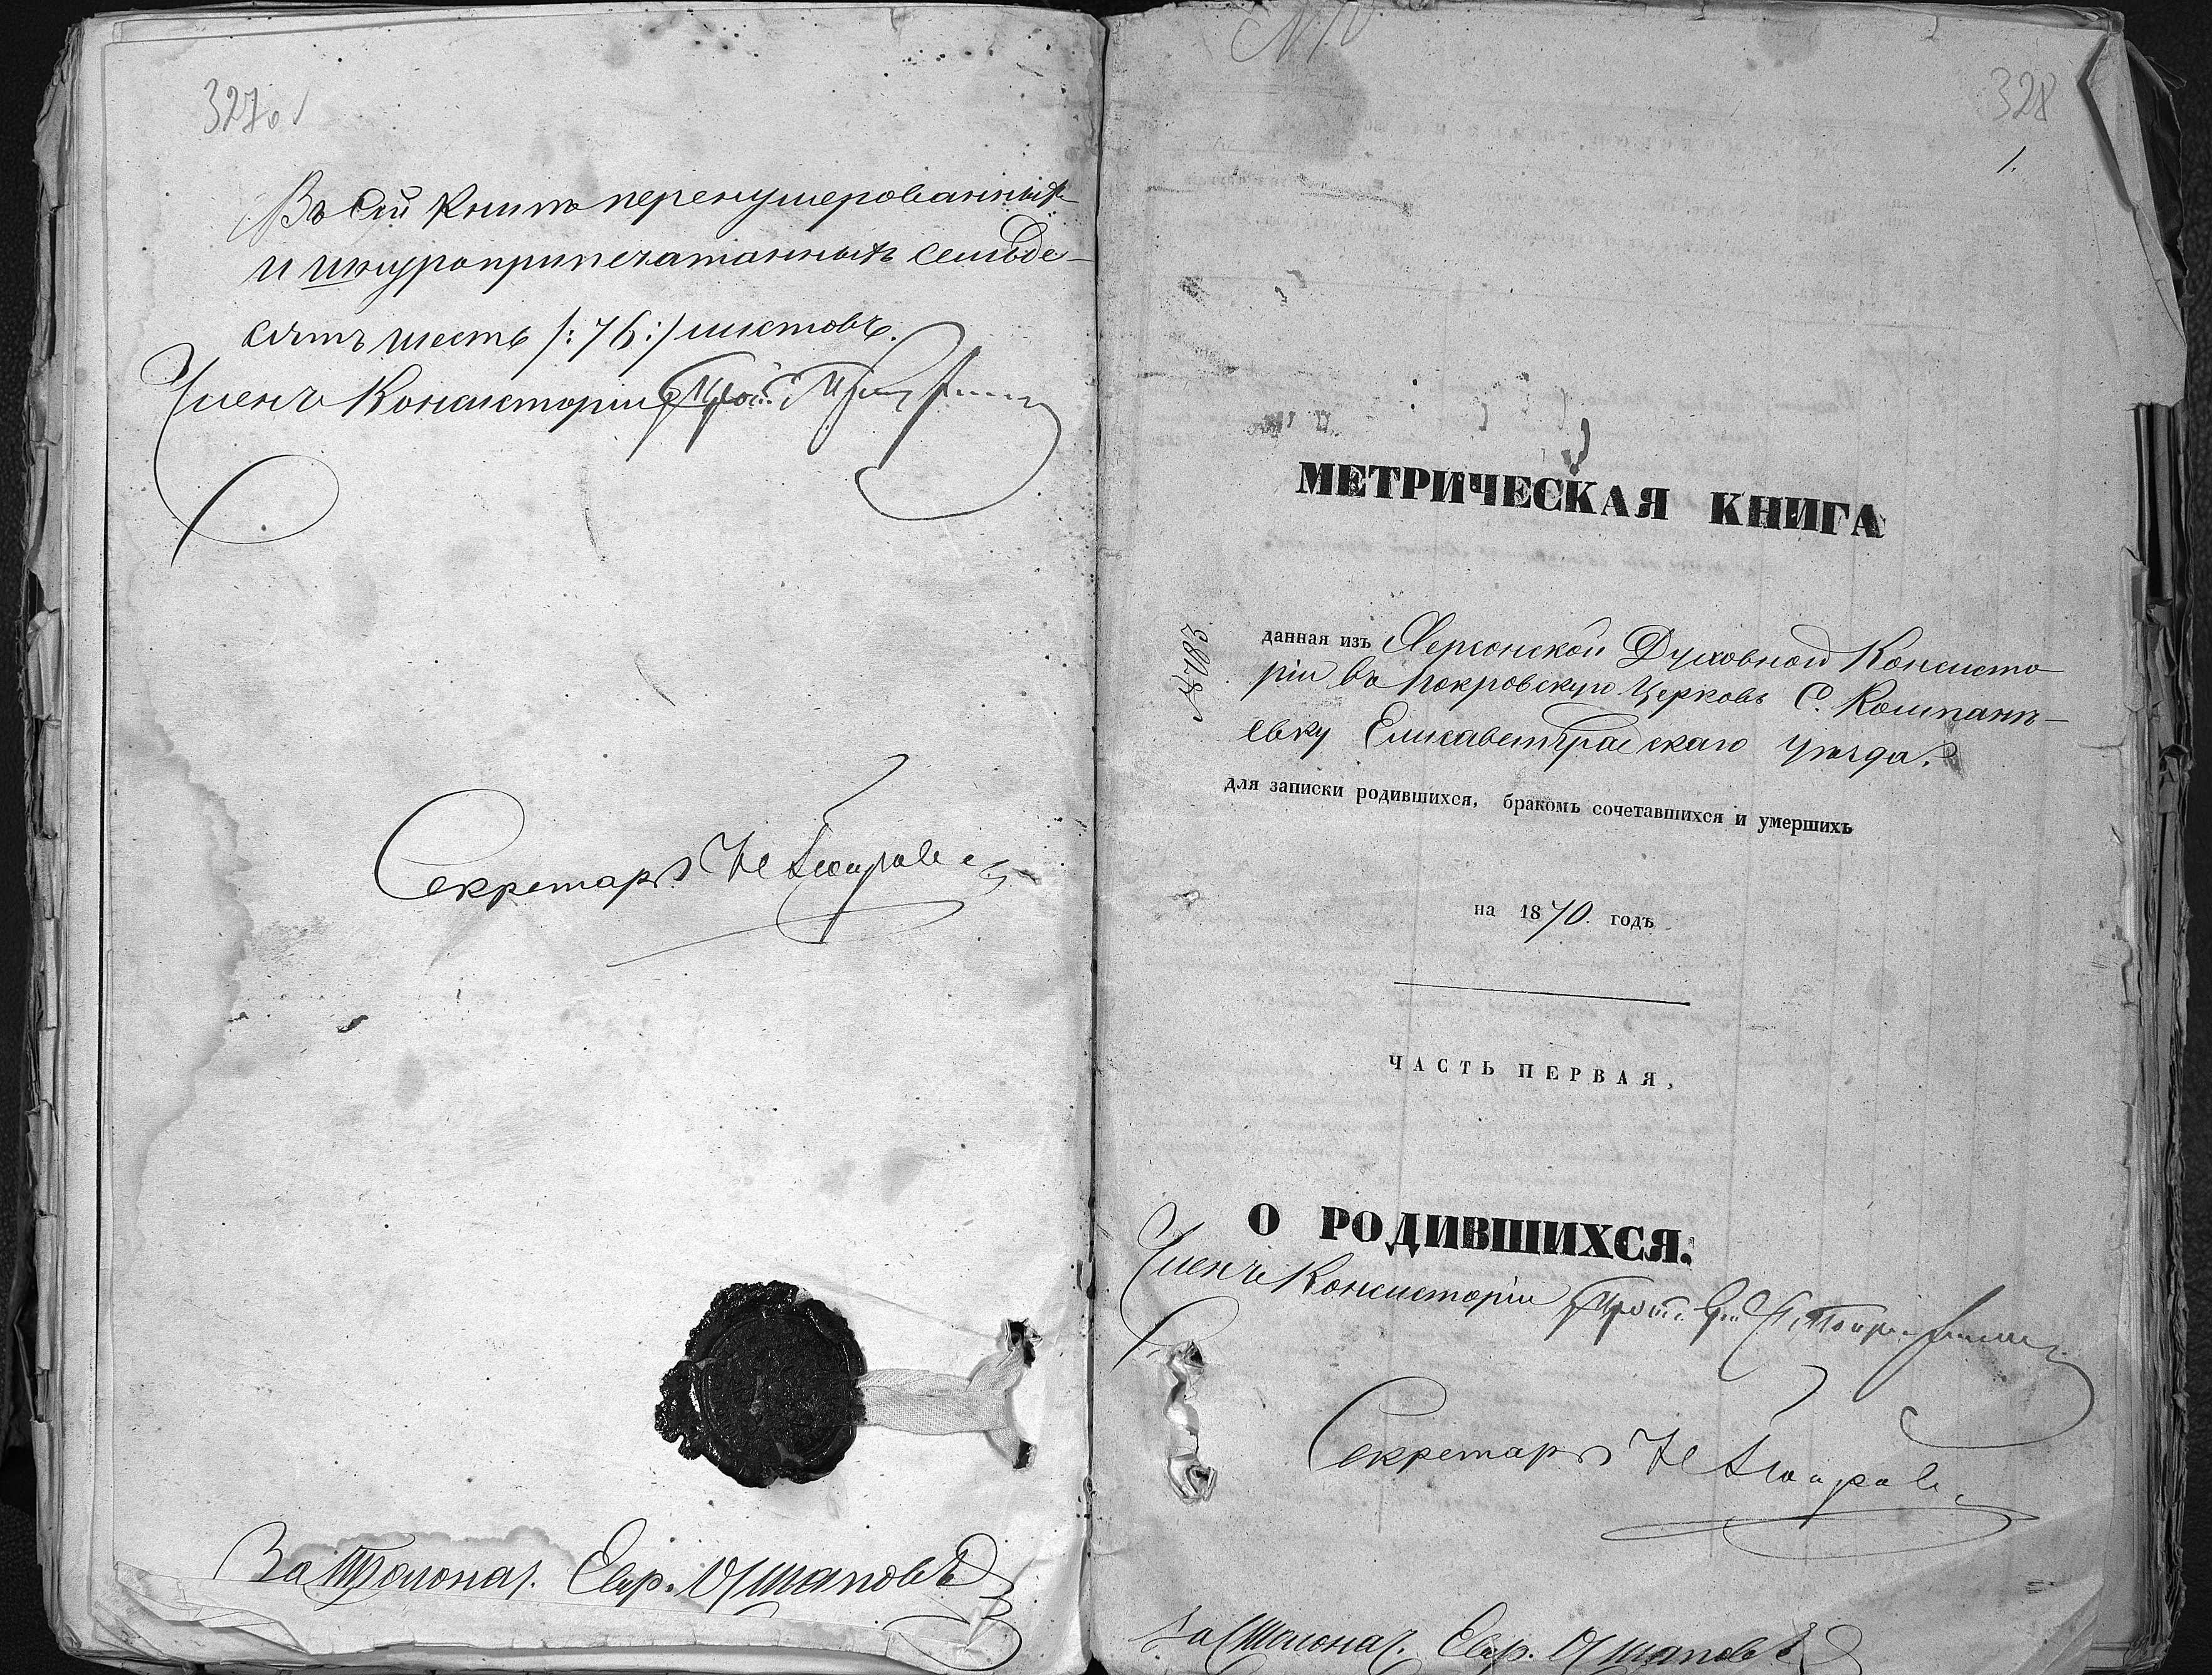 327об
Въ сей Книгѣ перенумерованныхъ
и шнуроприпечатанныхъ семьде-
сятъ шесть /:76:/ листовъ.
Членъ Консисторіи Прот.
Секретарь
За Столонач. Евгр.
328
1.
МЕТРИЧЕСКАЯ КНИГА
№ 7183
данная изъ Херсонской Духовной Консисто
ріи въ Покровскую Церковь С. Компанѣ-
евку Елисаветградскаго уѣзда.
для записки родившихся, бракомъ сочетавшихся и умершихъ
на 1870. годъ
ЧАСТЬ ПЕРВАЯ,
О РОДИВШИХСЯ.
Членъ Консисторіи Прот.
Секретарь
За Столонач. Евгр.